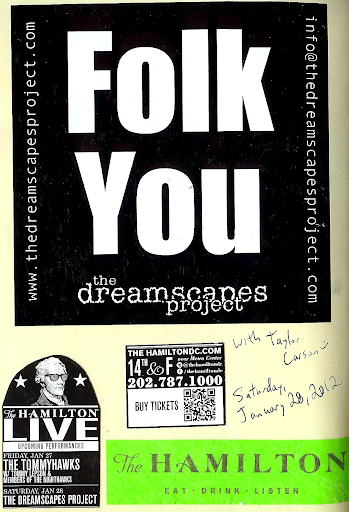 www.thedreamscapesproject.com
Folk
You
info@thedreamscapesproject.com
the
dreamscapes
project
with Taylor
Carson
Saturday,
January 28, 2012
THE HAMILTONDC.COM
near Metro Center
14TH & F
@thehamiltondc
/thehamiltondc
202.787.1000
BUY TICKETS
The
HAMILTON
LIVE
UPCOMING PERFORMANCES
FRIDAY, JAN 27
THE TOMMYHAWKS
W/ TOMMY LEPSON &
MEMBERS OF THE NIGHTHAWKS
SATURDAY, JAN 28
THE DREAMSCAPES PROJECT
The HAMILTON
EAT · DRINK · LISTEN